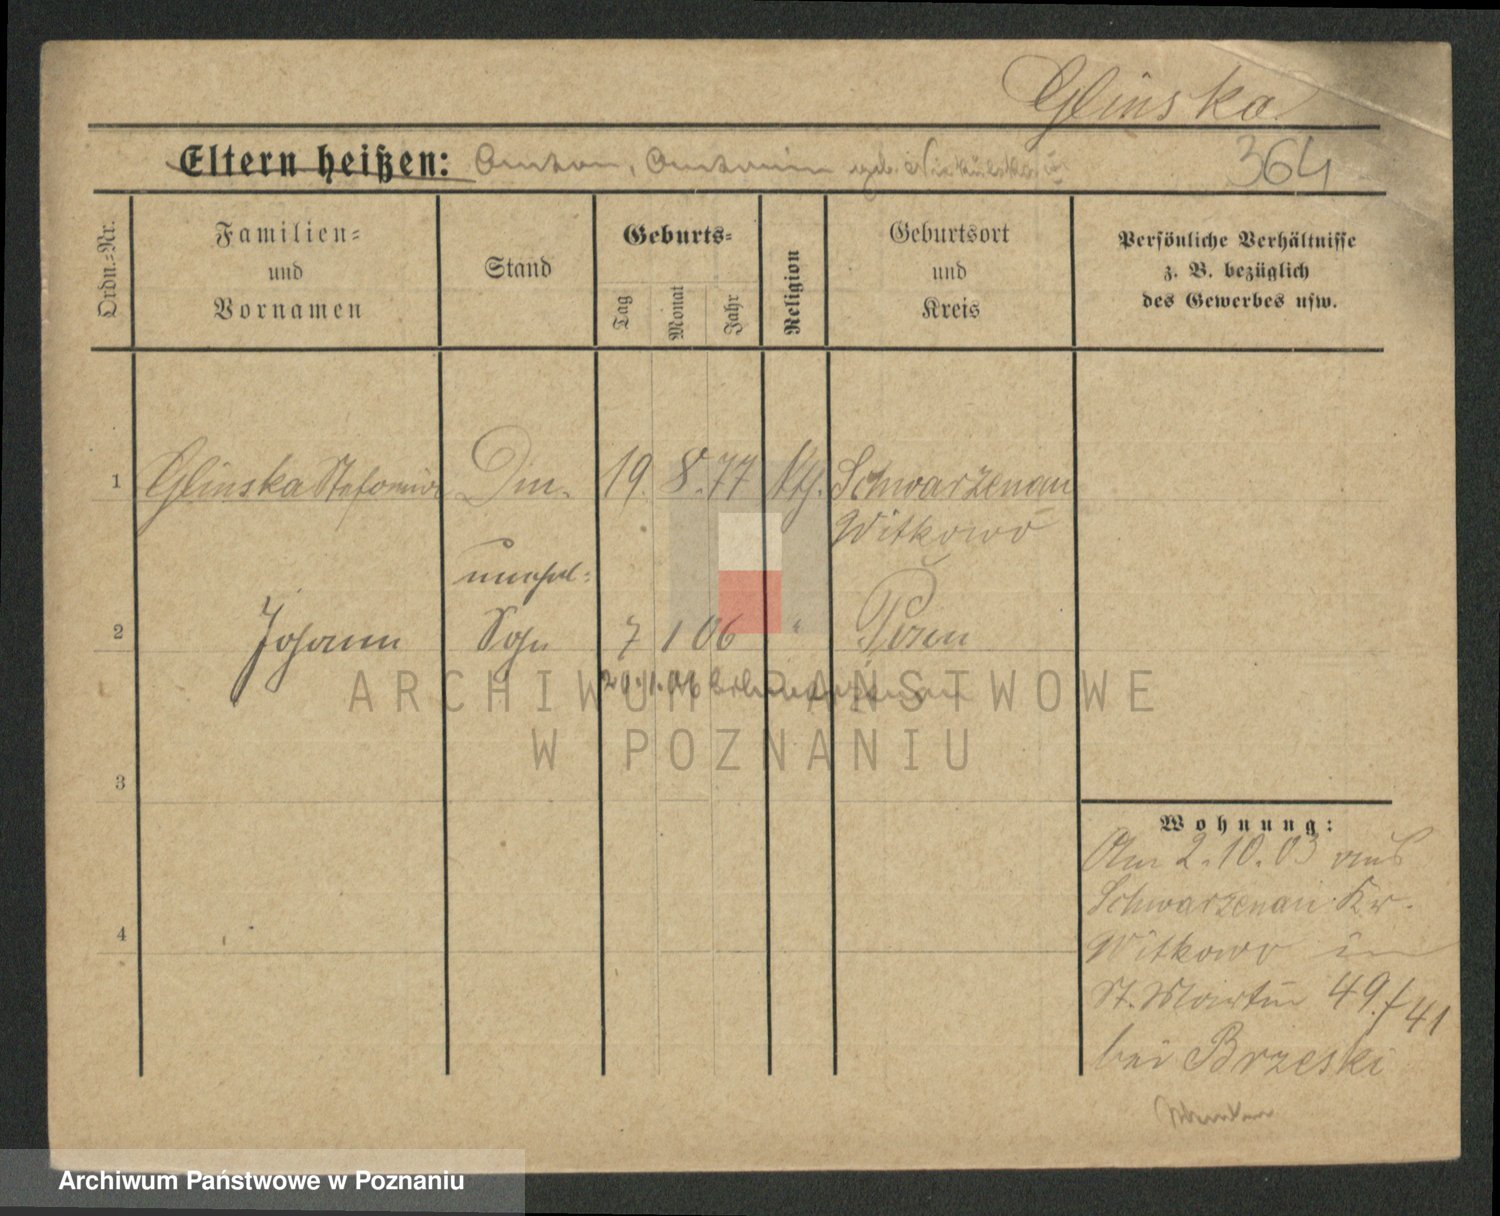 Glinska
364
Eltern heißen: Anton, Antonin geb.
Ordn.-Nr.
Familien-
und
Vornamen
Stand
Geburts-
Tag
Monat
Jahr
Religion
Geburtsort
und
Kreis
Persönliche Verhältnisse
z. B. bezüglich
des Gewerbes usw.
1 Glinska Stefania Dm. 19. 8. 77 kth. Schwarzenau
Witkowo
unehel:
2 Johann Sohn 7 1 06 " Posen
20.1.06 Schwarzenau
3
4
Wohnung:
Am 2.10.03 aus
Schwarzenau Kr.
Witkowo in
St. Martin 49/41
bei Brzeski
ARCHIWUM PAŃSTWOWE
W POZNANIU
Archiwum Państwowe w Poznaniu